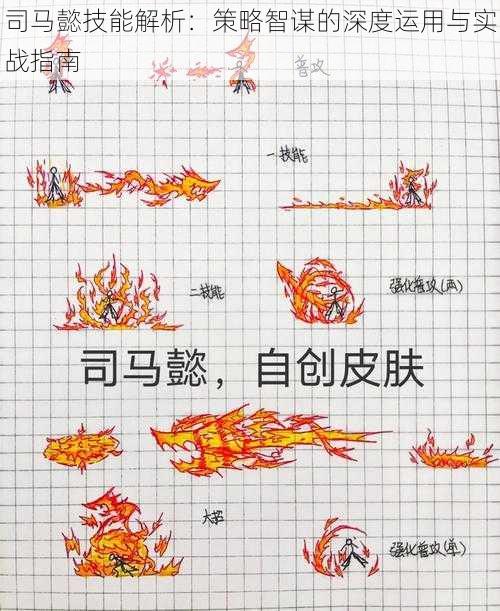 司马懿技能解析：策略智谋的深度运用与实
战指南
普攻
一技能
二技能
强化普攻(两)
司马懿，自创皮肤
大招
强化普攻(单)